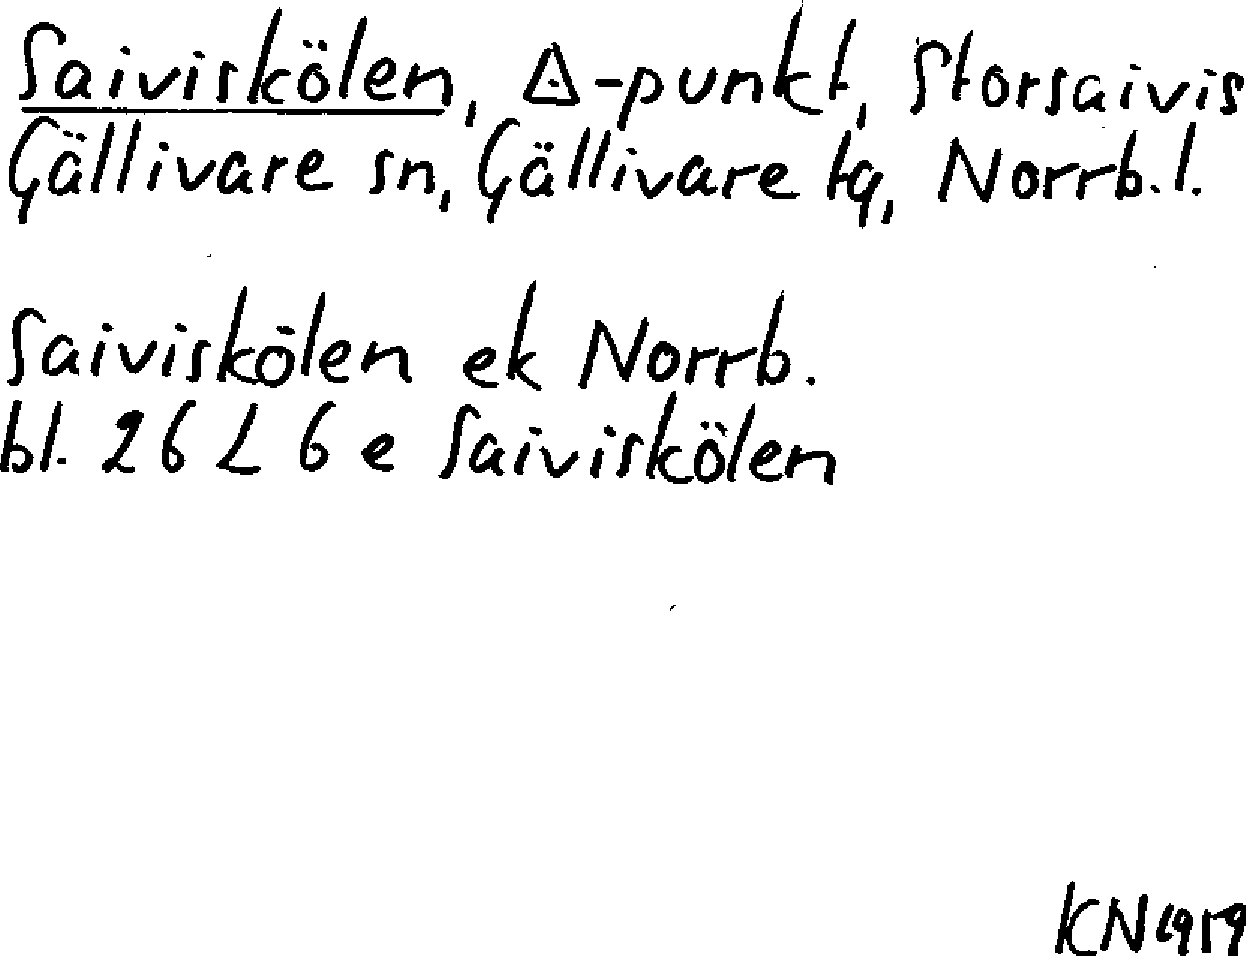 Saiviskölen, Δ-punkt, Storsaivis
Gällivare sn, Gällivare tg, Norrb. l.
Saiviskölen ek Norrb.
bl. 26 L 6 e Saiviskölen
KN